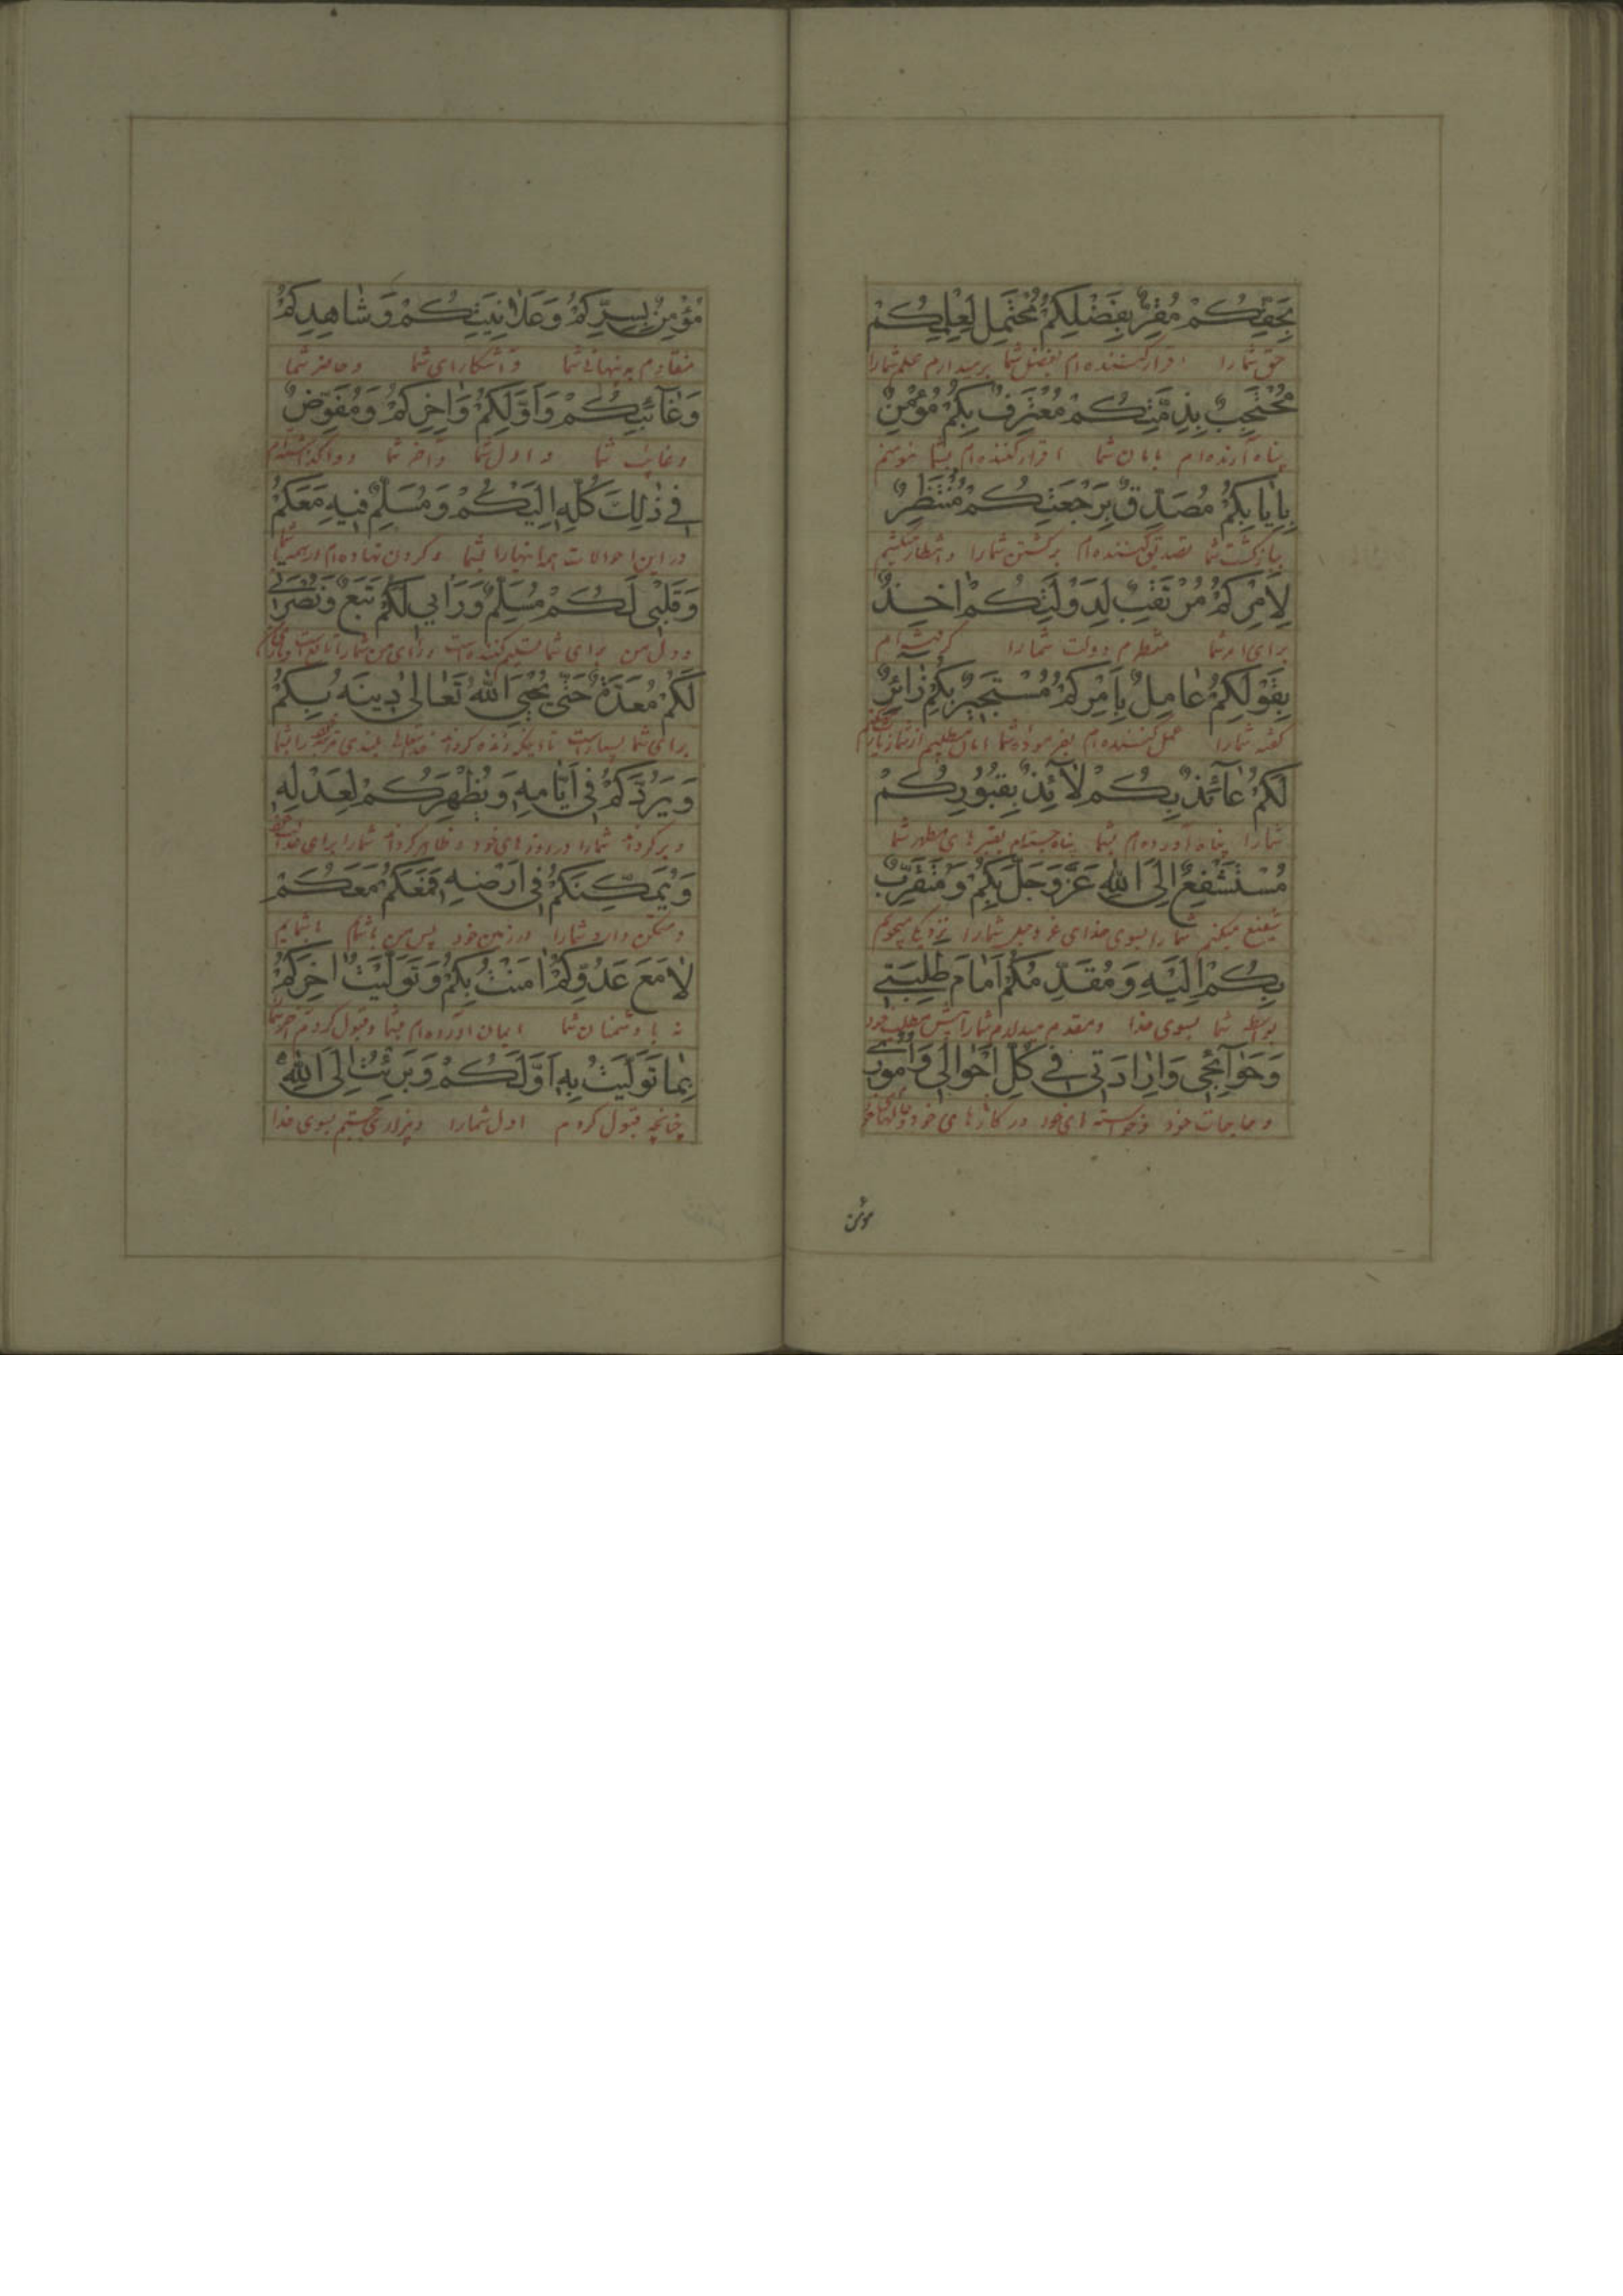 بِحَقِّكُمْ مُقِرٌّ بِفَضْلِكُمْ مُحْتَمِلٌ لِعِلْمِكُمْ
حق شما را اقرار کننده‌ام بفضل شما بر میدارم علم شما را
مُحْتَجِبٌ بِذِمَّتِكُمْ مُعْتَرِفٌ بِكُمْ مُؤْمِنٌ
پناه آرنده‌ام بامان شما اقرار کننده‌ام بشما مؤمنم
بِاِيَابِكُمْ مُصَدِّقٌ بِرَجْعَتِكُمْ مُنْتَظِرٌ
ببازگشت شما تصدیق کننده‌ام برگشتن شما را و انتظار میکشم
لِاَمْرِكُمْ مُرْتَقِبٌ لِدَوْلَتِكُمْ اٰخِذٌ
برای امر شما منتظرم دولت شما را گرفته‌ام
بِقَوْلِكُمْ عَامِلٌ بِاَمْرِكُمْ مُسْتَجِيرٌ بِكُمْ زَائِرٌ
گفته شما را عمل کننده‌ام بفرموده شما امان میطلبم از شما
لَكُمْ عَائِذٌ بِكُمْ لَائِذٌ بِقُبُورِكُمْ
شما را پناه آورده‌ام بشما پناه جسته‌ام بقبرهای مطهر شما
مُسْتَشْفِعٌ اِلَى اللهِ عَزَّ وَجَلَّ بِكُمْ وَمُتَقَرِّبٌ
شفیع میکنم شما را بسوی خدای عز و جل شما را نزدیکی میجویم
بِكُمْ اِلَيْهِ وَمُقَدِّمُكُمْ اَمَامَ طَلِبَتِي
بواسطه شما بسوی خدا و مقدم میدارم شما را پیش مطلب خود
وَحَوَائِجِي وَاِرَادَتِي فِي كُلِّ اَحْوَالِي وَاُمُورِي
و حاجات خود و خواسته‌ای خود در کارهای خود
مؤمن
مُؤْمِنٌ بِسِرِّكُمْ وَعَلَانِيَتِكُمْ وَشَاهِدِكُمْ
به پنهانی شما و آشکارای شما و حاضر شما
وَغَائِبِكُمْ وَاَوَّلِكُمْ وَاٰخِرِكُمْ وَمُفَوِّضٌ
و غایب شما و اول شما و آخر شما و واگذاشته‌ام
فِي ذٰلِكَ كُلِّهِ اِلَيْكُمْ وَمُسَلِّمٌ فِيهِ مَعَكُمْ
در این احوالات همه اینها را بشما و گردن نهاده‌ام
وَقَلْبِي لَكُمْ مُسَلِّمٌ وَرَأْيِي لَكُمْ تَبَعٌ وَنُصْرَتِي
و دل من برای شما تسلیم کننده است و رای من شما را تابع است
لَكُمْ مُعَدَّةٌ حَتّٰى يُحْيِيَ اللهُ تَعَالٰى دِينَهُ بِكُمْ
برای شما مهیاست تا اینکه زنده گرداند را بشما
وَيَرُدَّكُمْ فِي اَيَّامِهِ وَيُظْهِرَكُمْ لِعَدْلِهِ
و برگرداند شما را در روزهای خود و ظاهر گرداند شما را برای
وَيُمَكِّنَكُمْ فِي اَرْضِهِ فَمَعَكُمْ مَعَكُمْ
و متمکن دارد شما را در زمین خود پس من با شما با شمایم
لَا مَعَ عَدُوِّكُمْ اٰمَنْتُ بِكُمْ وَتَوَلَّيْتُ اٰخِرَكُمْ
نه با دشمنان شما ایمان آورده‌ام بشما و قبول کردم آخر شما
بِمَا تَوَلَّيْتُ بِهِ اَوَّلَكُمْ وَبَرِئْتُ اِلَى اللهِ
چنانچه قبول کردم اول شما را و بیزاری جستم بسوی خدا